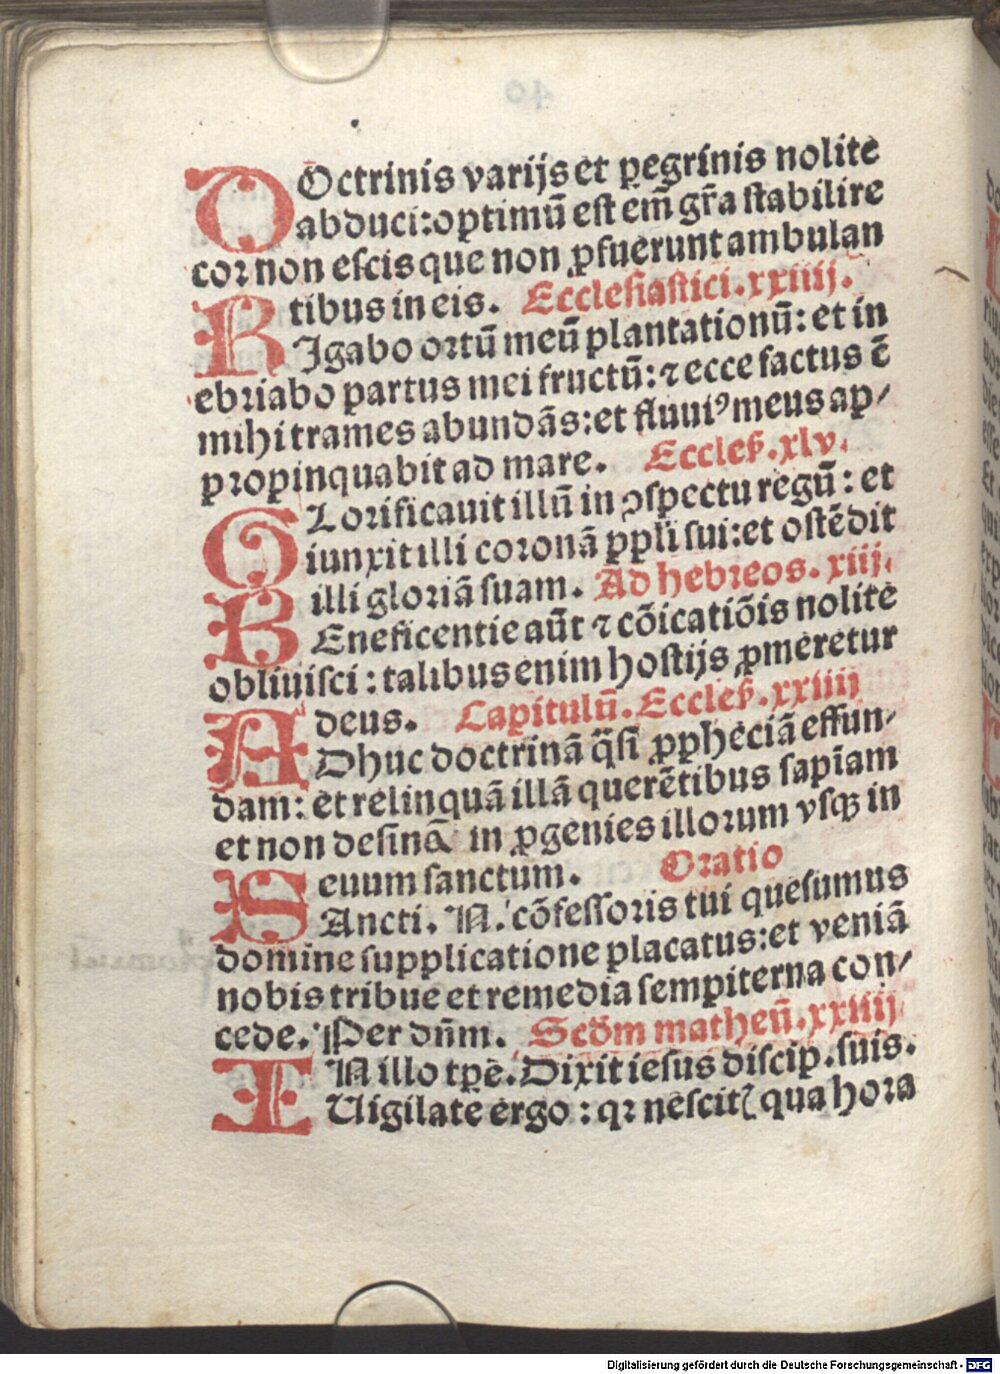 DOctrinis varijs et ꝑegrinis nolite
abduci: optimū est em̄ gr̄a stabilire
cor non escis que non ꝓfuerunt ambulan
tibus in eis. Ecclesiastici. xxiiij.
RIgabo ortū meū plantationū: et in
ebriabo partus mei fructū: ⁊ ecce factus ē
mihi trames abundās: et fluuiꝰ meus ap/
propinquabit ad mare. Eccles. xlv.
GLorificauit illū in ↄspectu regū: et
iunxit illi coronā ppl̄i sui: et ostēdit
illi gloriā suam. Ad hebreos. xiij.
BEneficentie aūt ⁊ cōicatiōis nolite
obliuisci: talibus enim hostijs ꝓmeretur
deus. Capitulū. Eccles. xxiiij
ADhuc doctrinā q̄si ꝓpheciā effun/
dam: et relinquā illā querētibus sapīam
et non desinā in ꝓgenies illorum vsqꝫ in
euum sanctum. Oratio
SAncti. N. cōfessoris tui quesumus
domine supplicatione placatus: et veniā
nobis tribue et remedia sempiterna con/
cede. Per dn̄m. Scd̄m matheū. xxiiij
IN illo tꝑe. Dixit iesus discip. suis.
Uigilate ergo: qꝛ nescitꝭ qua hora
Digitalisierung gefördert durch die Deutsche Forschungsgemeinschaft - DFG